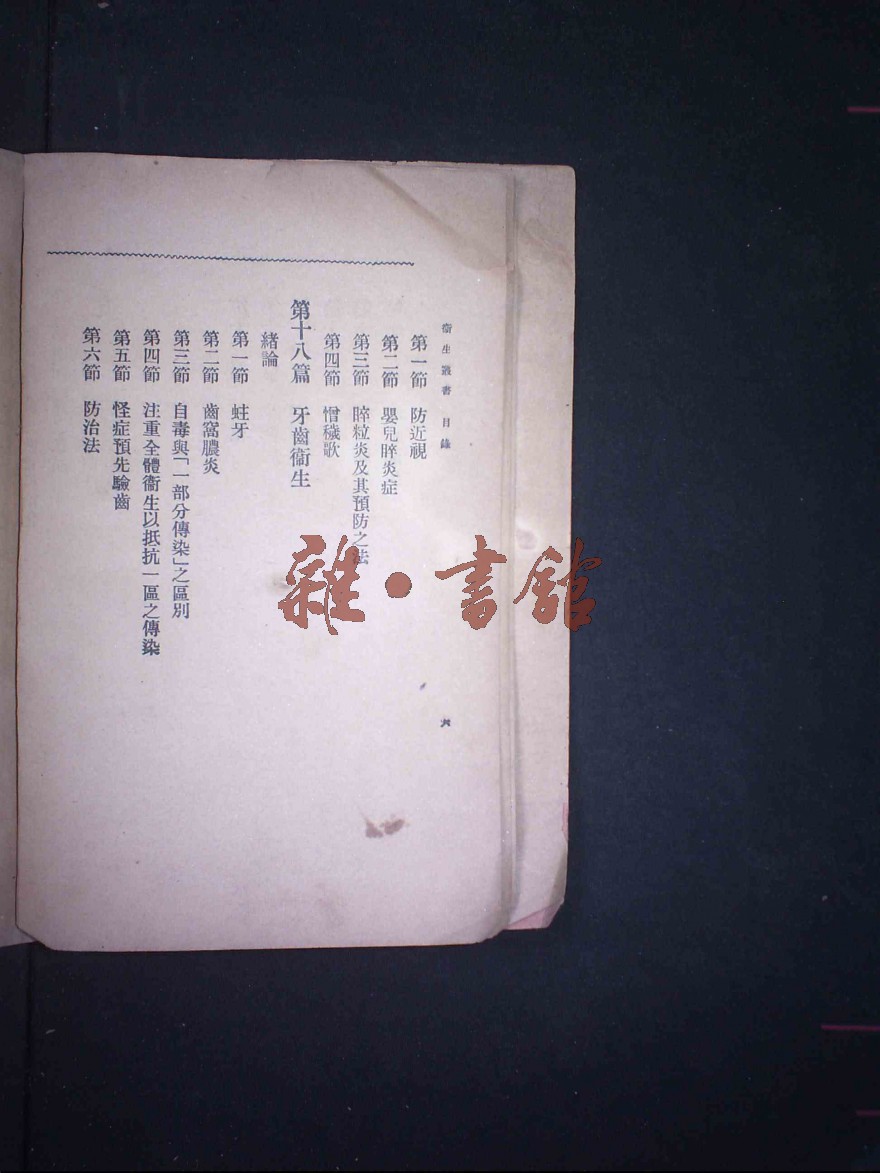 衞生叢書 目錄
六
第一節 防近視
第二節 嬰兒睟炎症
第三節 睟粒炎及其預防之法
第四節 憎穢歌
第十八篇 牙齒衞生
緒論
第一節 蛀牙
第二節 齒窩膿炎
第三節 自毒與「一部分傳染」之區別
第四節 注重全體衞生以抵抗一區之傳染
第五節 怪症預先驗齒
第六節 防治法
雜·書館